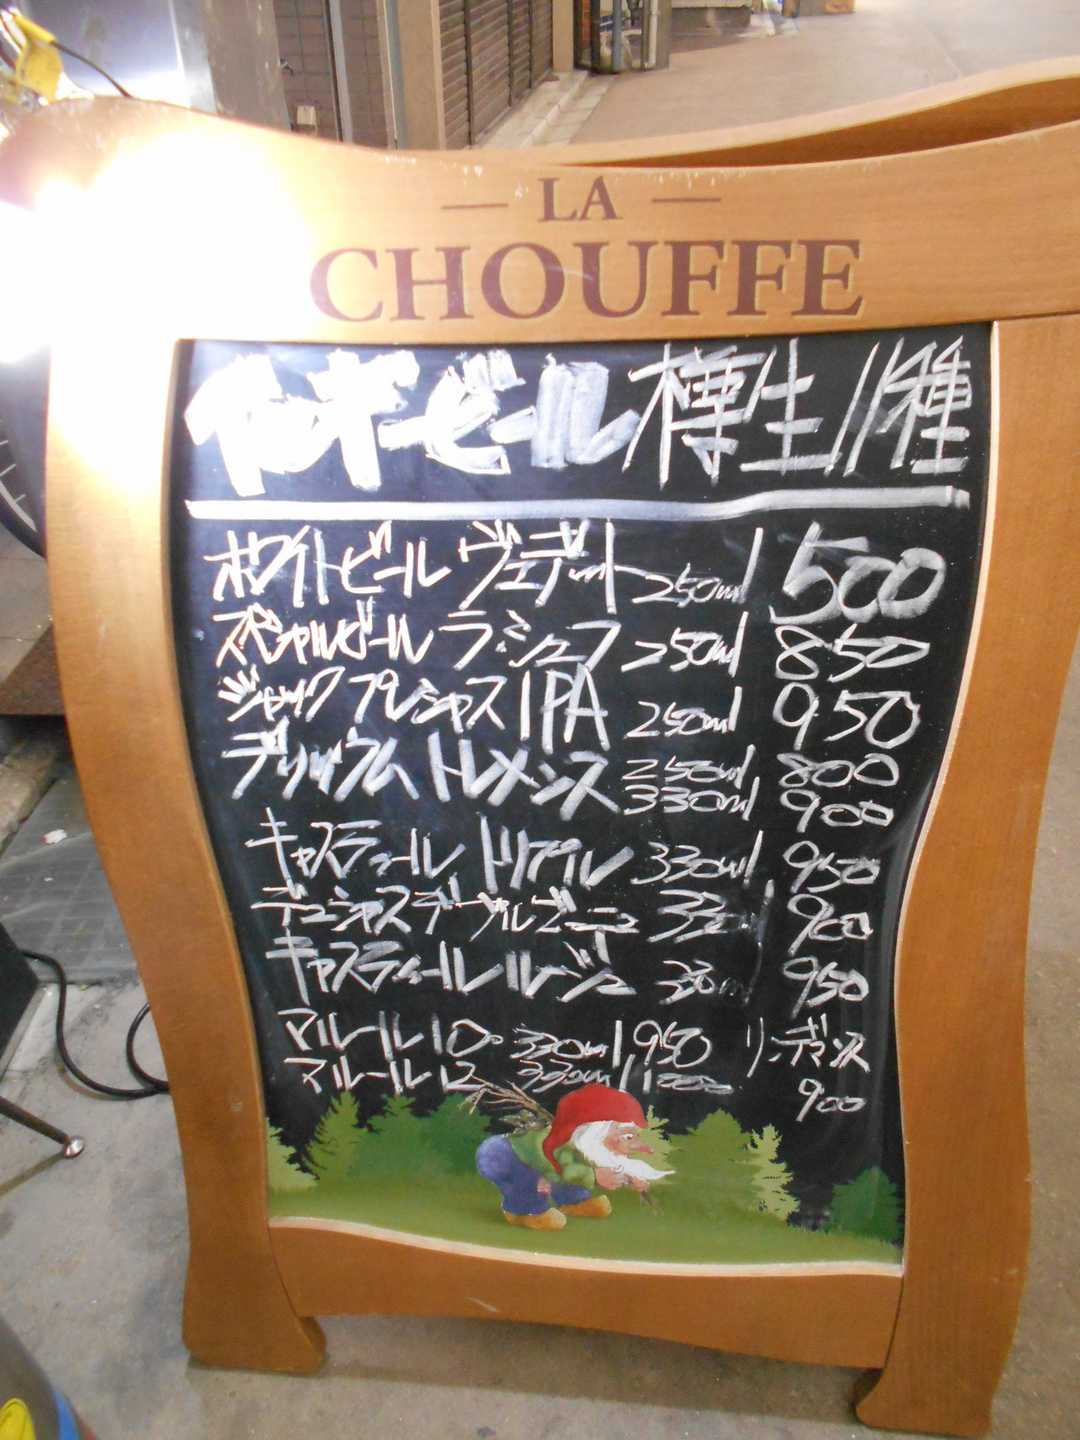 LA
CHOUFFE
ベルギービール 樽生11種
ホワイトビール ヴェデット 250ml 500
スペシャルビール ラ・シュフ 250ml 850
ジャックプレシャス IPA 250ml 950
デリリウム トレメンス 250ml 800
330ml 900
キャスティール トリプル 330ml 950
デュシャスデブルゴーニュ 330ml 900
キャスティール ルージュ 330ml 950
マルール10° 330ml 950 リ・ボンス
マルール12 330ml 1000 900